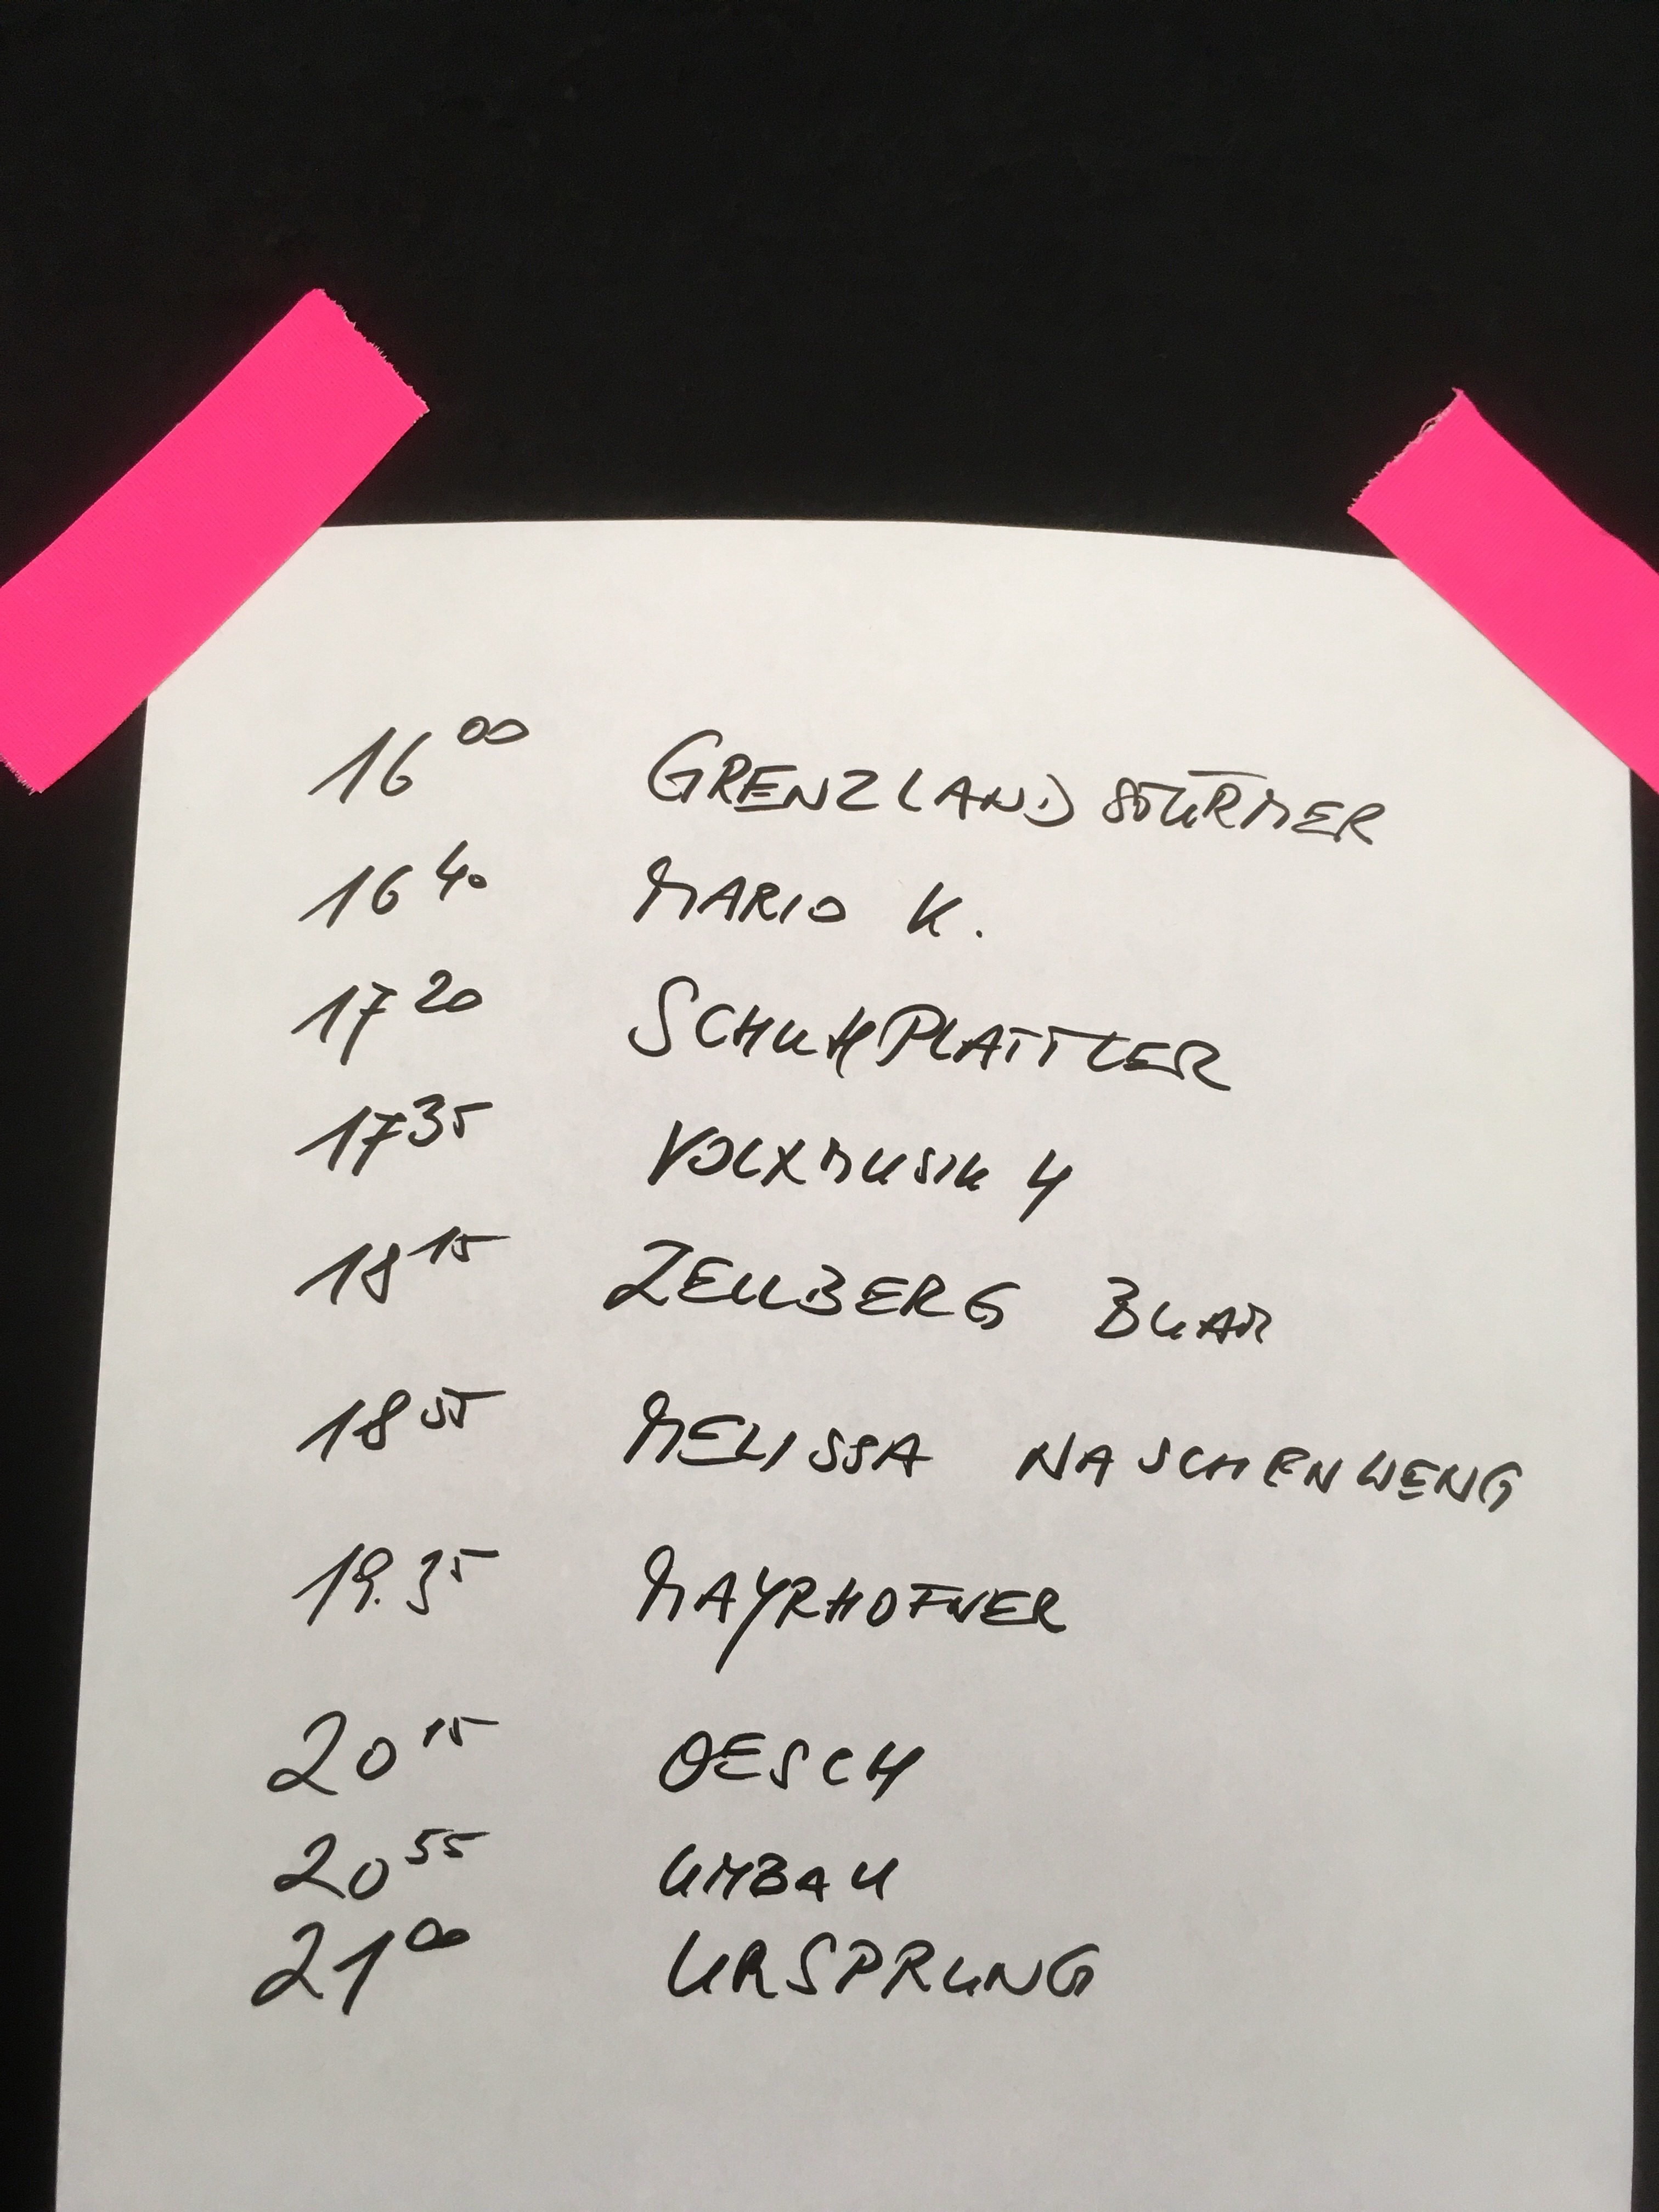 16 00 GRENZLANDSTÜRMER
16 40 MARIO K.
17 20 SCHUHPLATTLER
17 35 VOLXMUSIK 4
18 15 ZELLBERG BUAM
18 55 MELISSA NASCHENWENG
19.35 MAYRHOFNER
20 15 OESCH
20 55 UMBAU
21 00 URSPRUNG